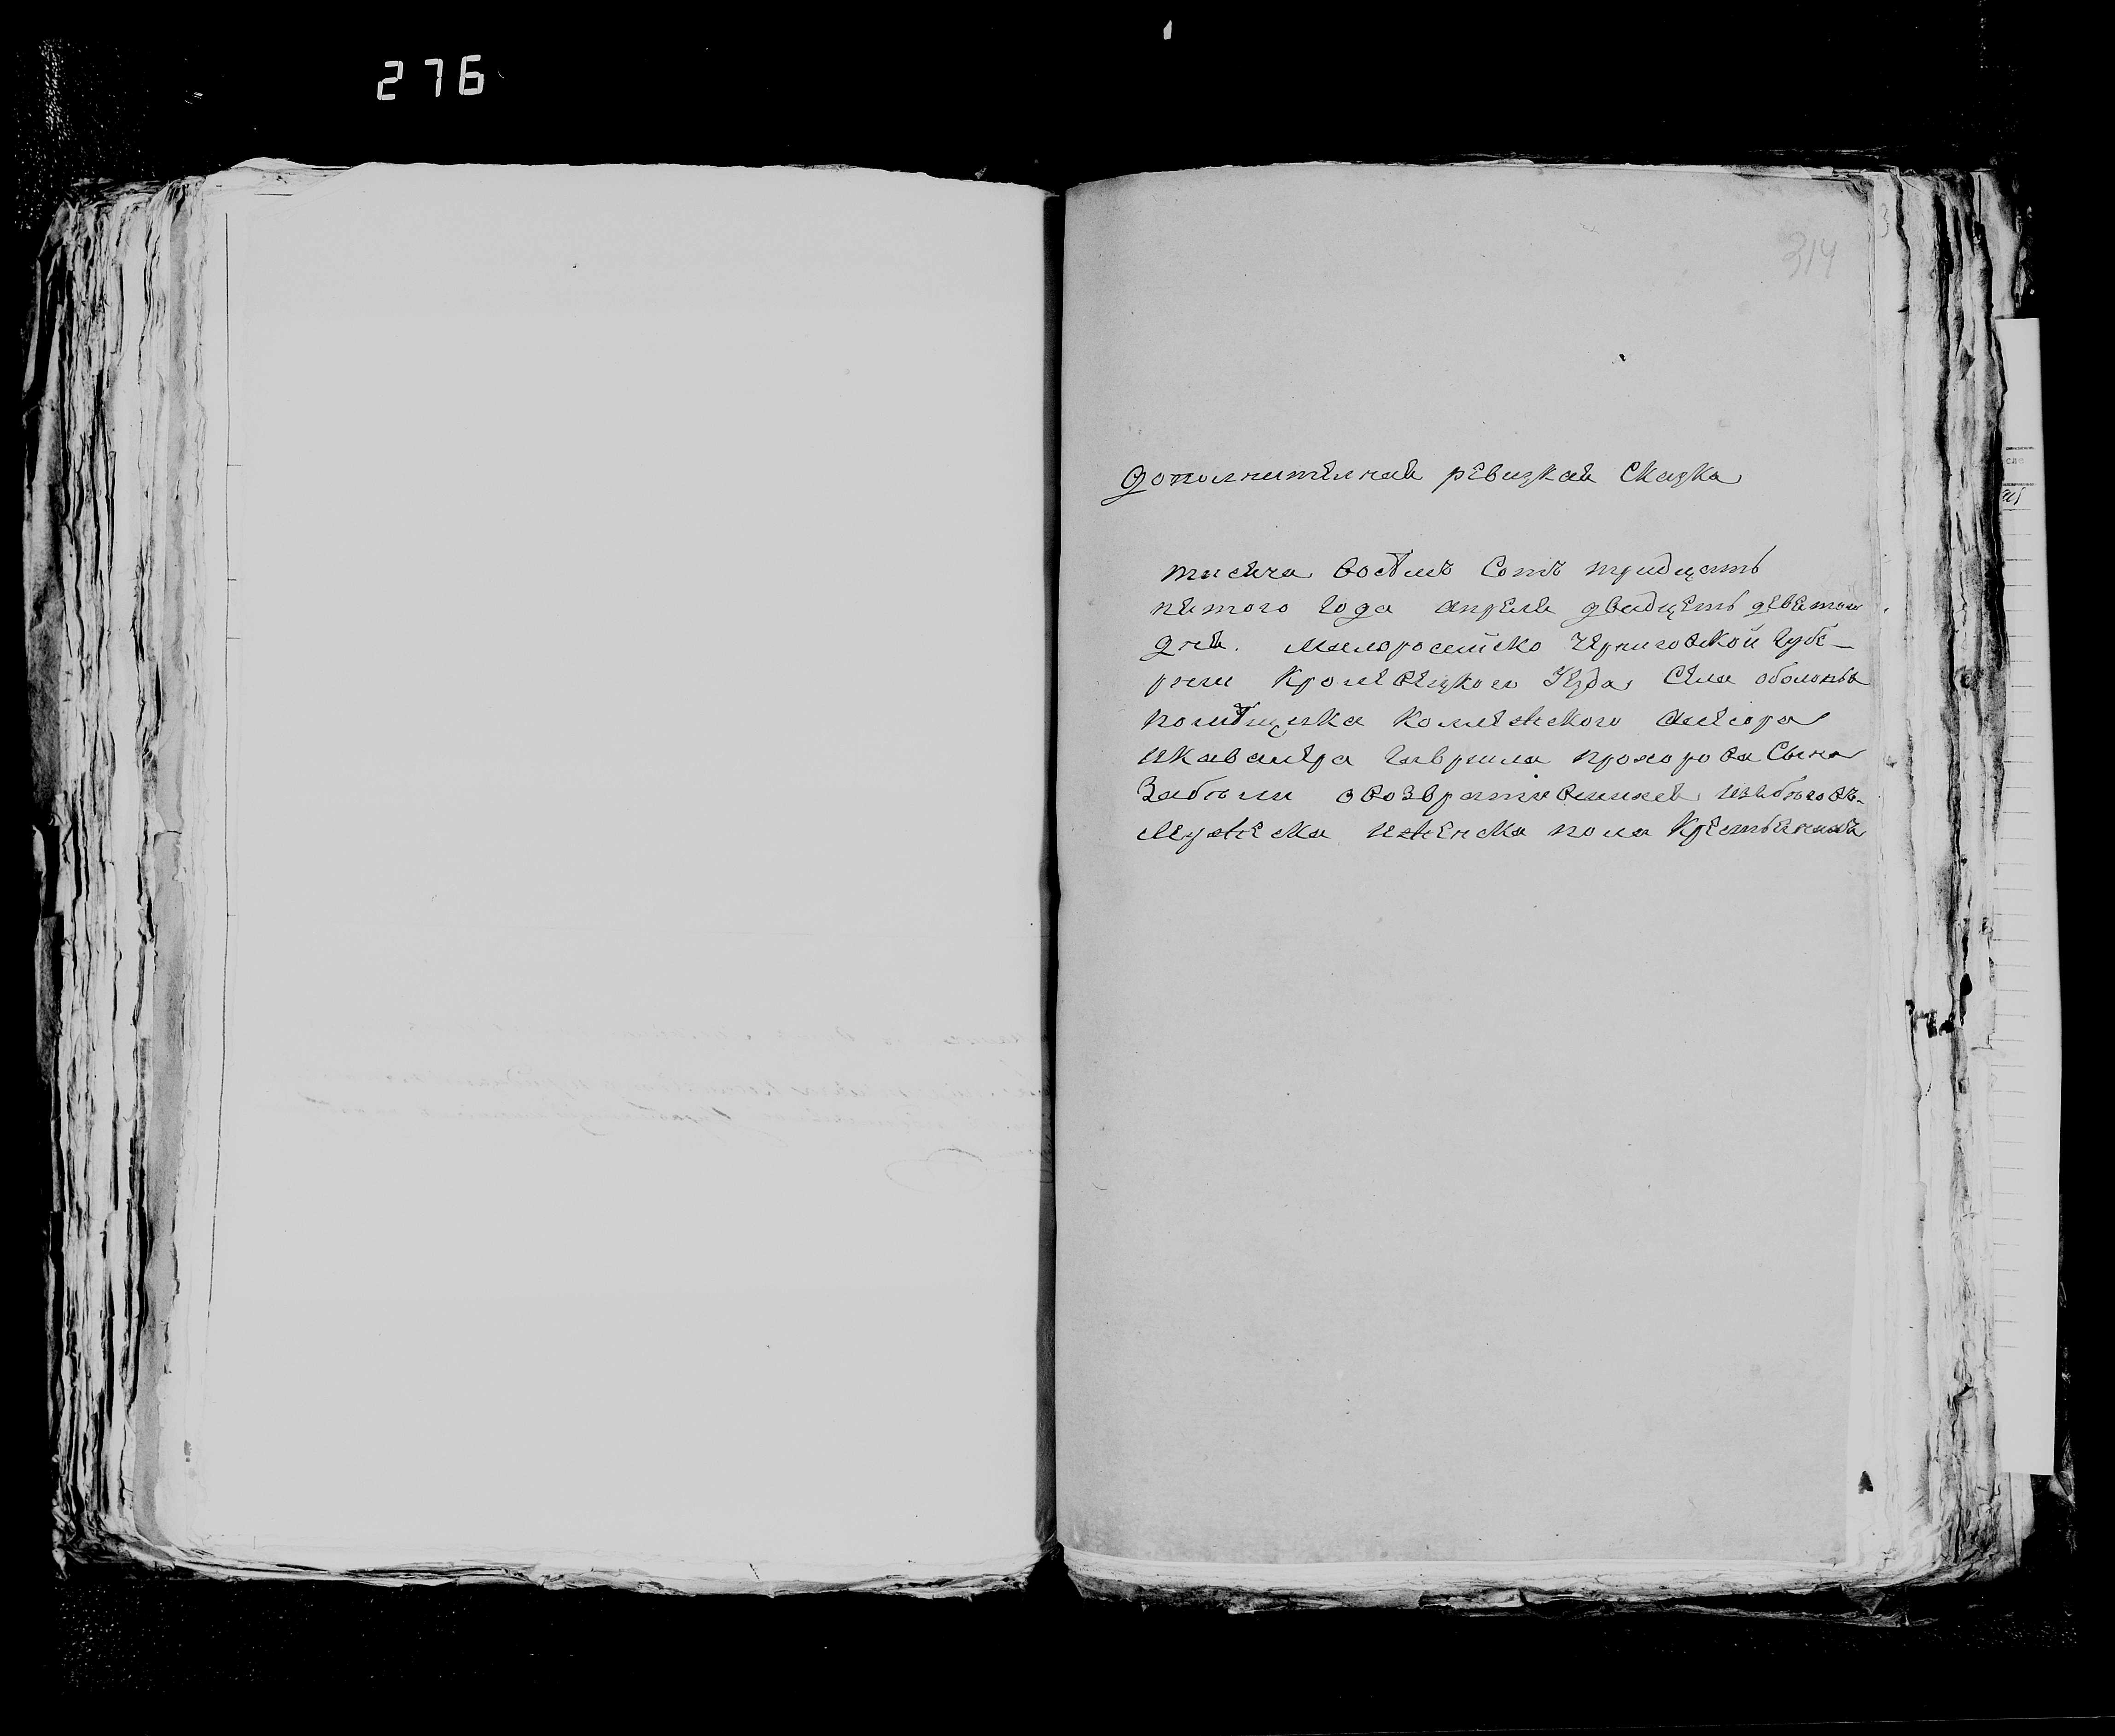 276
314
дополнителная ревизкая Сказка
тисяча восемъ Сотъ тридцать
пятого года апреля двадцять девятого
дня. Малоросийско Черниговской Губе-
рнии Кролевецкого Уезда Села оболонья
помѣщика Колежского асесора
икавалера Гаврила прохорова Сына
Забелы овозвратившихся избеговъ
Мужеска иженска пола Крестьянахъ